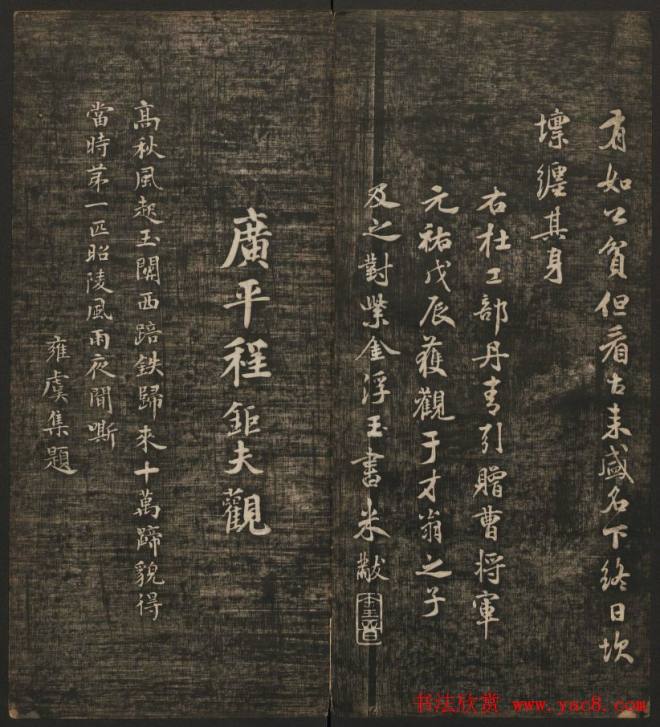 有如公貧但看古来盛名下終日坎
壈纏其身
右杜工部丹青引贈曹将軍
元祐戊辰蒦觀于才翁之子
及之對紫金浮玉書米黻
廣平程鉅夫觀
高秋風起玉關西踣鉄歸來十萬蹄貌得
當時第一匹昭陵風雨夜聞嘶
雍虞集題
书法欣赏 www.yac8.com